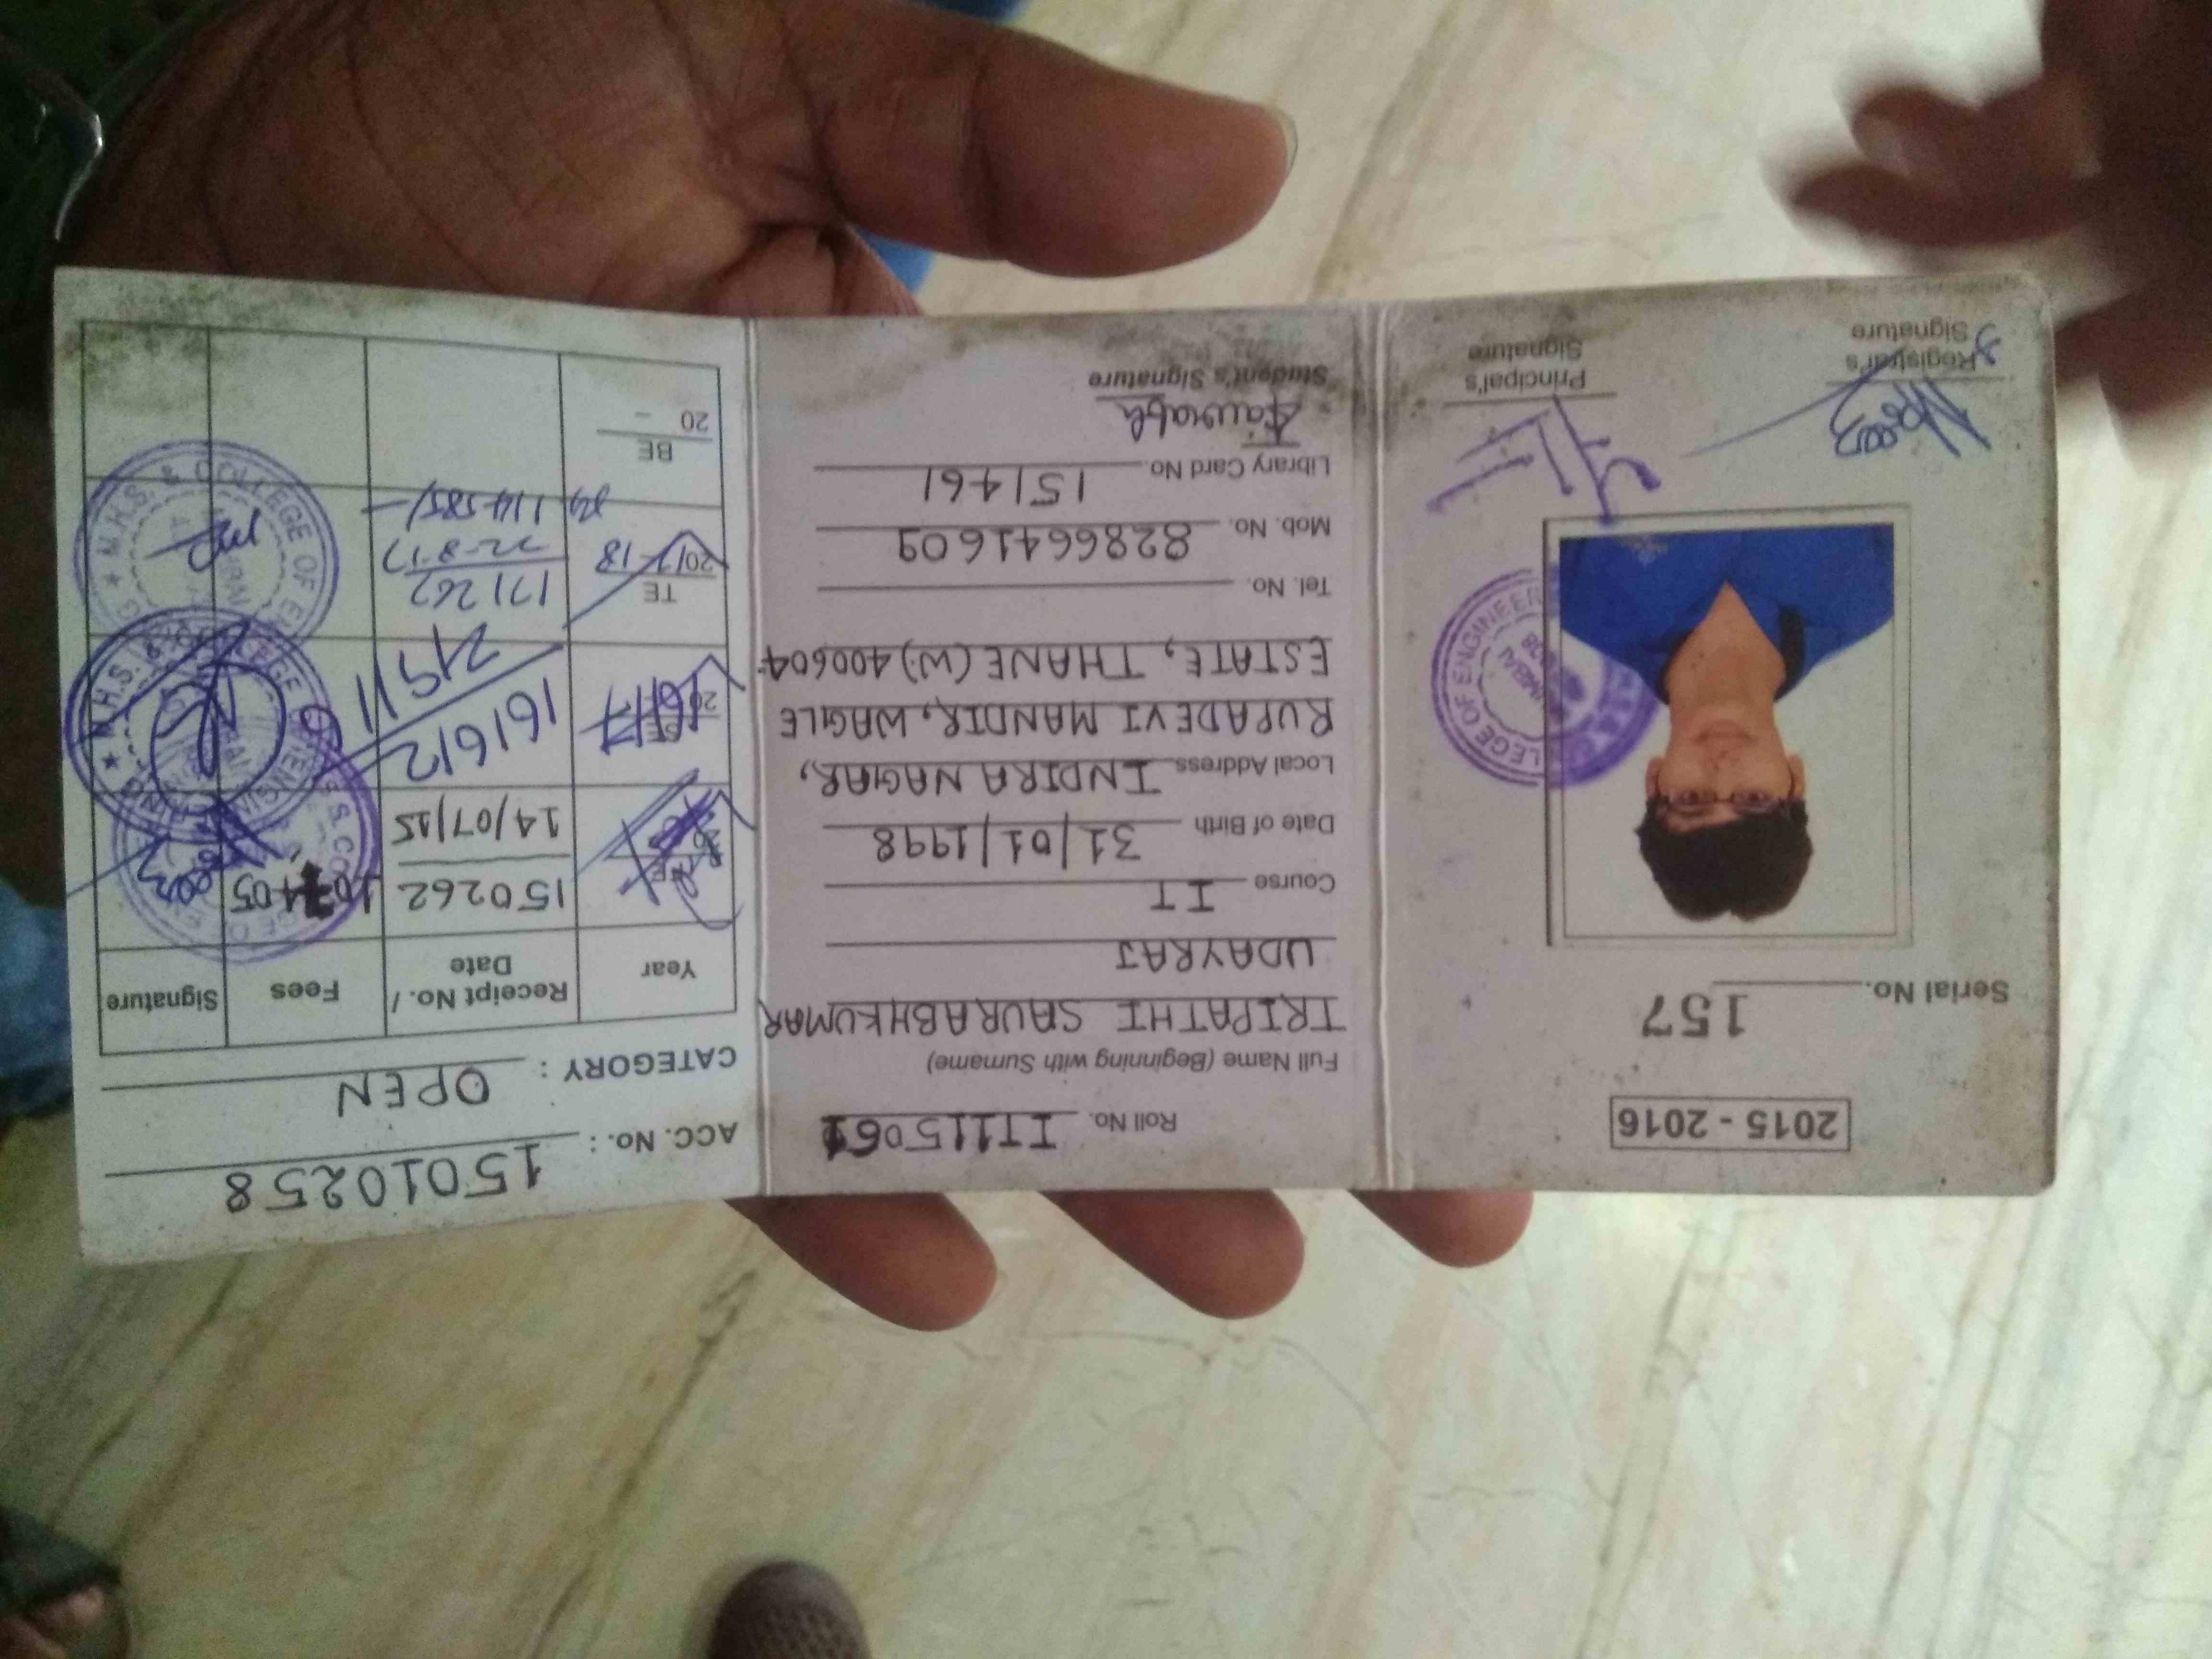 2015 - 2016
Serial No. 157
COLLEGE OF ENGINEER
Registrar's
Signature
Principal's
Signature
Roll No. IT115061
Full Name (Beginning with Surname)
TRIPATHI SAURABHKUMAR
UDAYRAJ
Course IT
Date of Birth 31/01/1998
Local Address INDIRA NAGAR,
RUPADEVI MANDIR, WAGLE
ESTATE, THANE (W) 400604
Tel. No.
Mob. No. 8286641609
Library Card No. 151461
Saurabh
Student's Signature
ACC. No. : 15010258
CATEGORY : OPEN
Year Receipt No. / Date Fees Signature
FE 150262
14/07/15
SE 16/17 161612
TE 171262
2017-18 22-8-17
114585/-
BE
20 -
M.H.S.S. COLLEGE OF ENGINEERING